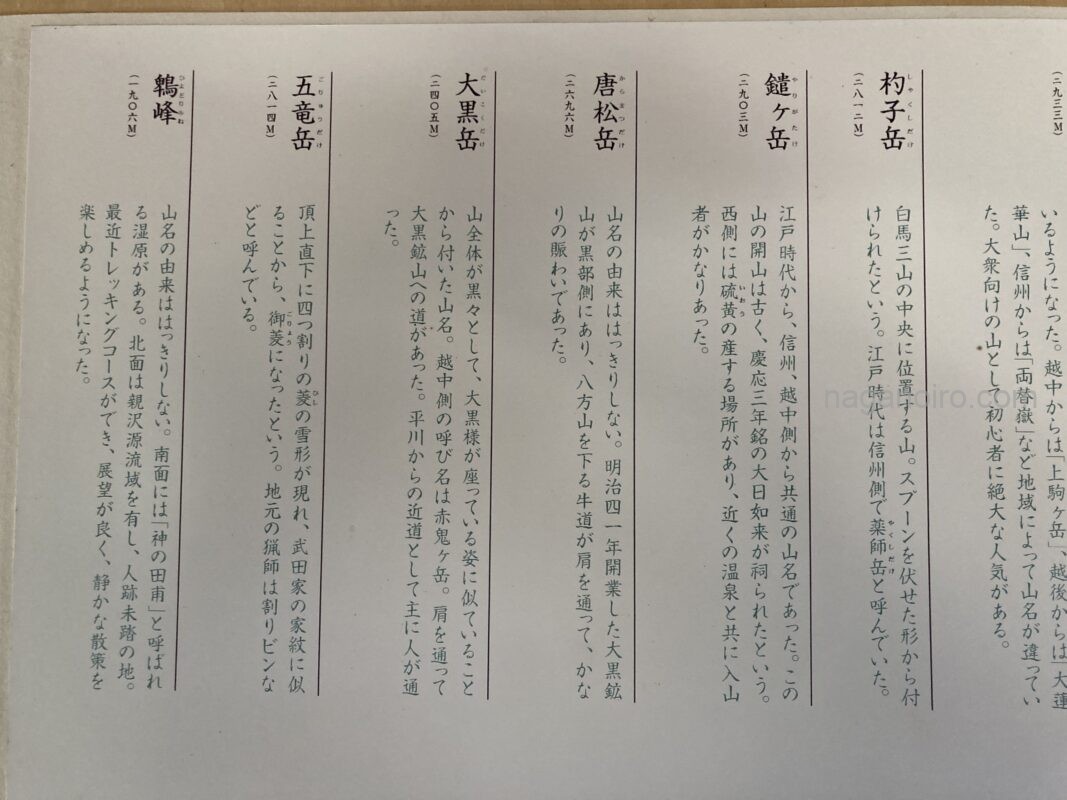 (二九三三M)
いるようになった。越中からは「上駒ヶ岳」、越後からは「大蓮
華山」、信州からは「両替嶽」など地域によって山名が違ってい
た。大衆向けの山として初心者に絶大な人気がある。
杓子岳
しゃくしだけ
(二八一二M)
白馬三山の中央に位置する山。スプーンを伏せた形から付
けられたという。江戸時代は信州側で薬師岳と呼んでいた。
やくしだけ
鑓ヶ岳
やりがたけ
(二九〇三M)
江戸時代から、信州、越中側から共通の山名であった。この
山の開山は古く、慶応三年銘の大日如来が祠られたという。
西側には硫黄の産する場所があり、近くの温泉と共に入山
いおう
者がかなりあった。
唐松岳
からまつだけ
(二六九六M)
山名の由来ははっきりしない。明治四一年開業した大黒鉱
山が黒部側にあり、八方山を下る牛道が肩を通って、かな
りの賑わいであった。
大黒岳
だいこくだけ
(二四〇五M)
山全体が黒々として、大黒様が座っている姿に似ていること
から付いた山名。越中側の呼び名は赤鬼ヶ岳。肩を通って
大黒鉱山への道があった。平川からの近道として主に人が通
った。
五竜岳
ごりゅうだけ
(二八一四M)
頂上直下に四つ割りの菱の雪形が現れ、武田家の家紋に似
ひし
ることから、御菱になったという。地元の猟師は割りビシな
ごりょう
どと呼んでいる。
鵯峰
ひよどりみね
(一九〇六M)
山名の由来ははっきりしない。南面には「神の田甫」と呼ばれ
る湿原がある。北面は親沢源流域を有し、人跡未踏の地。
最近トレッキングコースができ、展望が良く、静かな散策を
楽しめるようになった。
naganoiro.com